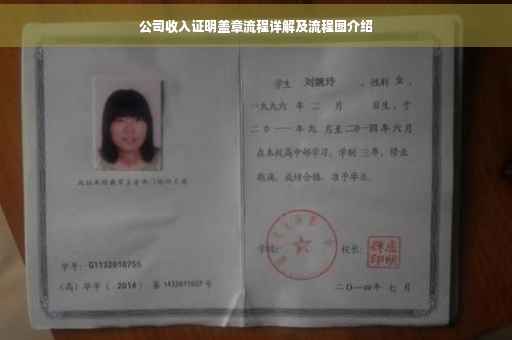 公司收入证明盖章流程详解及流程图介绍
学生 刘婉玲 ，性别 女 ，
一九九六 年 二 月 日生，于
二〇一一年九 月至二〇一四年 六 月
在本校高中部学习，学制 三年，修业
期满，成绩合格，准予毕业。
学校： 校长：
学号： G1132010755
（高）毕字（ 2014 ）第 1432011027 号
二〇一四年 七 月